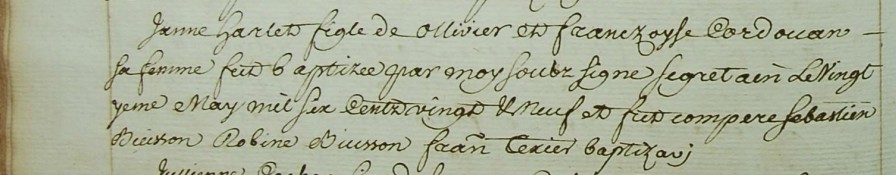 Janne Harlet figle de Ollivier et Franczoysse Cordouan
sa femme fut baptizee par moy soubz signe segretain Le Vingt
yeme May mil six Centz vingt & Neuf et fut compere Sebastien
Buisson Robine Buisson Fran Texier baptizavi
Jullienne